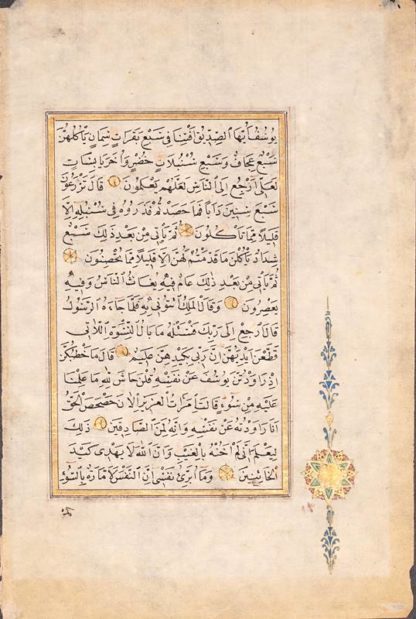 يُوسُفُ أَيُّهَا الصِّدِّيقُ أَفْتِنَا فِي سَبْعِ بَقَرَاتٍ سِمَانٍ يَأْكُلُهُنَّ
سَبْعٌ عِجَافٌ وَسَبْعِ سُنْبُلَاتٍ خُضْرٍ وَأُخَرَ يَابِسَاتٍ
لَعَلِّي أَرْجِعُ إِلَى النَّاسِ لَعَلَّهُمْ يَعْلَمُونَ قَالَ تَزْرَعُونَ
سَبْعَ سِنِينَ دَأَبًا فَمَا حَصَدْتُمْ فَذَرُوهُ فِي سُنْبُلِهِ إِلَّا
قَلِيلًا مِمَّا تَأْكُلُونَ ثُمَّ يَأْتِي مِنْ بَعْدِ ذَلِكَ سَبْعٌ
شِدَادٌ يَأْكُلْنَ مَا قَدَّمْتُمْ لَهُنَّ إِلَّا قَلِيلًا مِمَّا تُحْصِنُونَ
ثُمَّ يَأْتِي مِنْ بَعْدِ ذَلِكَ عَامٌ فِيهِ يُغَاثُ النَّاسُ وَفِيهِ
يَعْصِرُونَ وَقَالَ الْمَلِكُ ائْتُونِي بِهِ فَلَمَّا جَاءَهُ الرَّسُولُ
قَالَ ارْجِعْ إِلَى رَبِّكَ فَسْئَلْهُ مَا بَالُ النِّسْوَةِ اللَّاتِي
قَطَّعْنَ أَيْدِيَهُنَّ إِنَّ رَبِّي بِكَيْدِهِنَّ عَلِيمٌ قَالَ مَا خَطْبُكُنَّ
إِذْ رَاوَدْتُنَّ يُوسُفَ عَنْ نَفْسِهِ قُلْنَ حَاشَ لِلَّهِ مَا عَلِمْنَا
عَلَيْهِ مِنْ سُوءٍ قَالَتِ امْرَأَتُ الْعَزِيزِ الْآنَ حَصْحَصَ الْحَقُّ
أَنَا رَاوَدْتُهُ عَنْ نَفْسِهِ وَإِنَّهُ لَمِنَ الصَّادِقِينَ ذَلِكَ
لِيَعْلَمَ أَنِّي لَمْ أَخُنْهُ بِالْغَيْبِ وَأَنَّ اللَّهَ لَا يَهْدِي كَيْدَ
الْخَائِنِينَ وَمَا أُبَرِّئُ نَفْسِي إِنَّ النَّفْسَ لَأَمَّارَةٌ بِالسُّوءِ